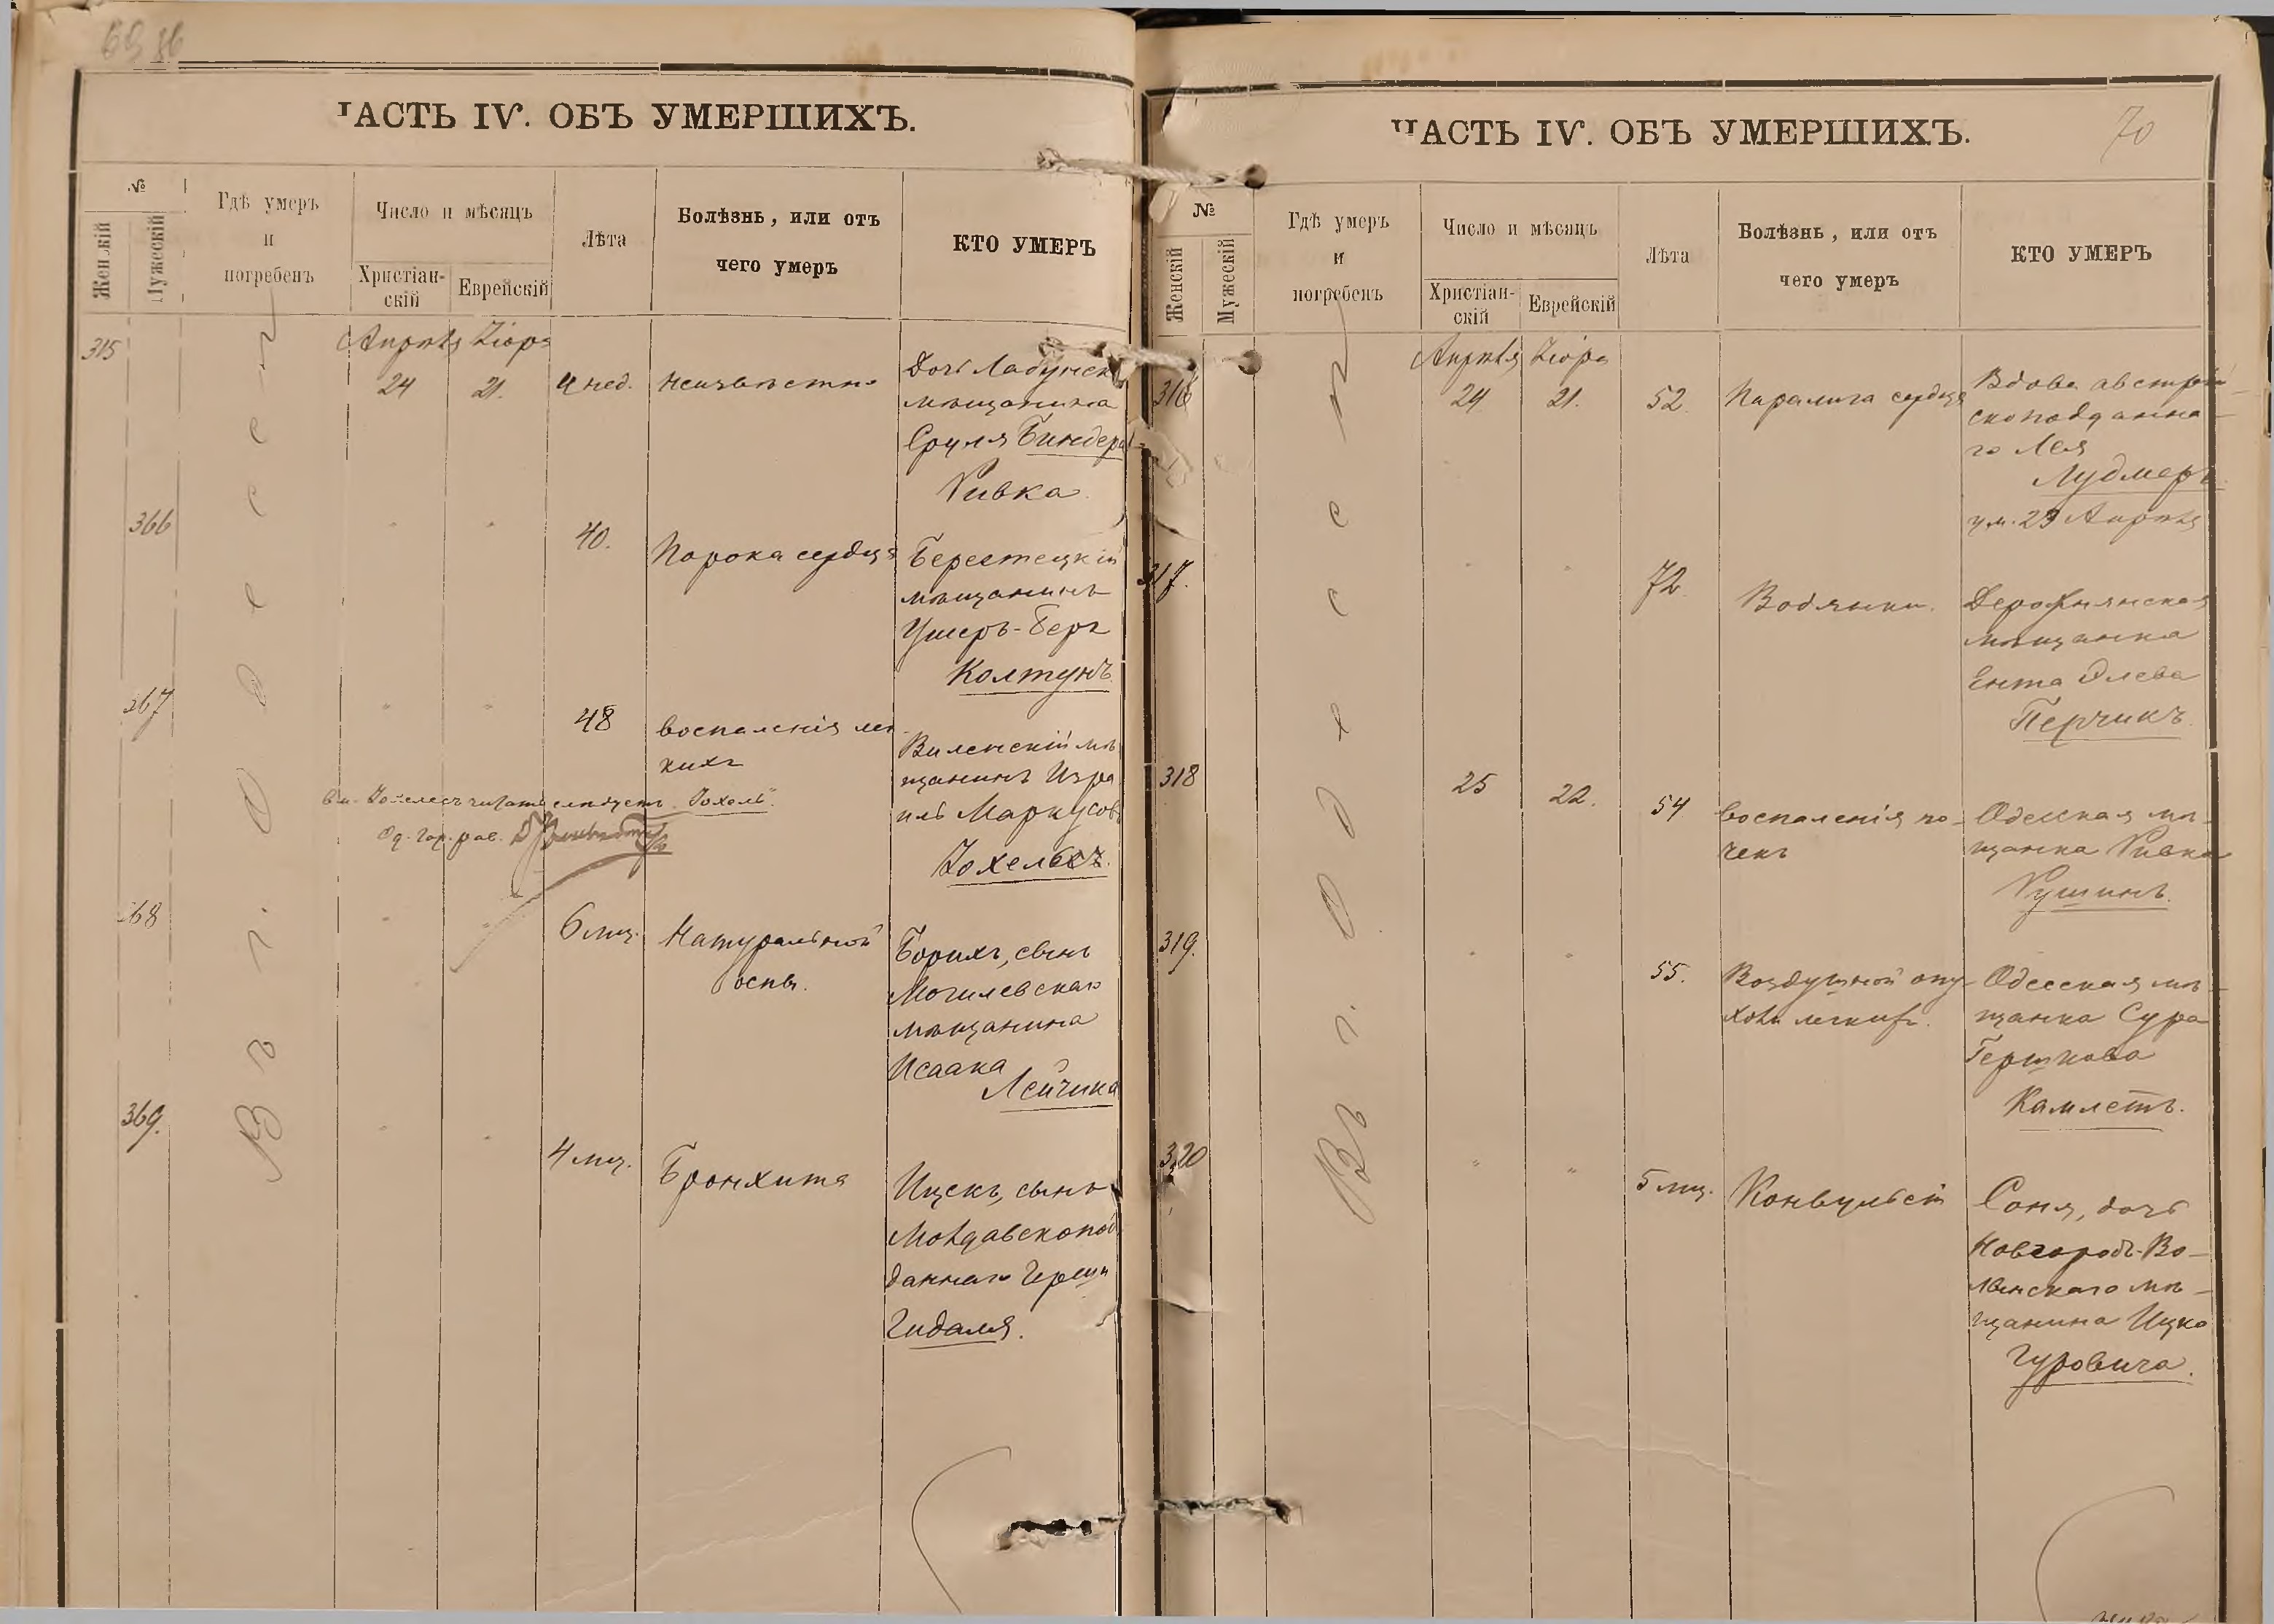 69
ЧАСТЬ IV. ОБЪ УМЕРШИХЪ.
№
Женскій
Мужескій
Гдѣ умеръ
и
погребенъ
Число и мѣсяцъ
Христіан-
скій
Еврейскій
Лѣта
Болѣзнь, или отъ
чего умеръ
КТО УМЕРЪ
Въ г. Одессѣ
Апрѣля Іюра
315
24 21. 4 нед. неизвѣстно
Дочь Ладунск
мѣщанина
Сруля Биндера
Ривка
366
" " 40. Порока сердца
Берестецкій
мѣщанинъ
Ушеръ-Беръ
Колтунъ
367
" " 48 воспаленія лег
кихъ
Виленскій мѣ
щанинъ Изра
иль Маркусов
Іохельсъ.
вм. Іохелесъ читать слѣдуетъ Іохель.
Од. Гор. рав.
368
" " 6 мц. Натуральной
оспы.
Борихъ, сынъ
Могилевскаго
мѣщанина
Исаака
Лейчика
369.
" " 4 мц. Бронхита
Ицекъ, сынъ
Молдавскопод
даннаго Герши
Гидаля.
70
ЧАСТЬ IV. ОБЪ УМЕРШИХЪ.
№
Женскій
Мужескій
Гдѣ умеръ
и
погребенъ
Число и мѣсяцъ
Христіан-
скій
Еврейскій
Лѣта
Болѣзнь, или отъ
чего умеръ
КТО УМЕРЪ
Въ г. Одессѣ
Апрѣля Іюра
316
24 21. 52. Паралича сердца
Вдова австрій
скоподданна
го Лея
Лудмеръ
ум. 23 Апрѣля
317.
" " 72. Водянки.
Деражнянская
мѣщанка
Ента Элева
Перчикъ.
318
25 22. 54 воспаленія по-
чекъ
Одесская мѣ-
щанка Ривка
Рушинъ.
319.
" " 55. Воздушной опу-
холи легкихъ.
Одесская мѣ-
щанка Сура
Гершкова
Камлетъ.
320
" " 5 мц. Конвульсій
Соня, дочь
Новгородъ-Во-
лынскаго мѣ-
щанина Ицко
Гуровича.